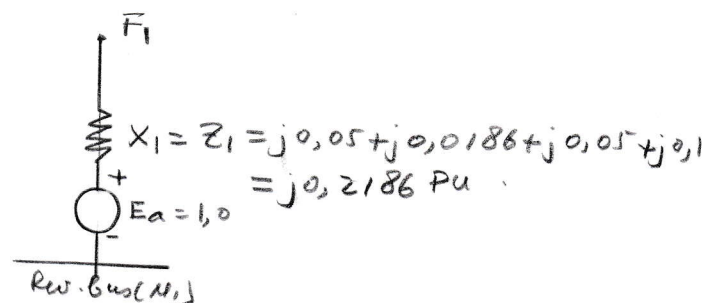 F̅1
X1 = Z1 = j0,05 + j0,0186 + j0,05 + j0,1
= j0,2186 PU.
+
Ea = 1,0
-
Rev. Bus (N1)